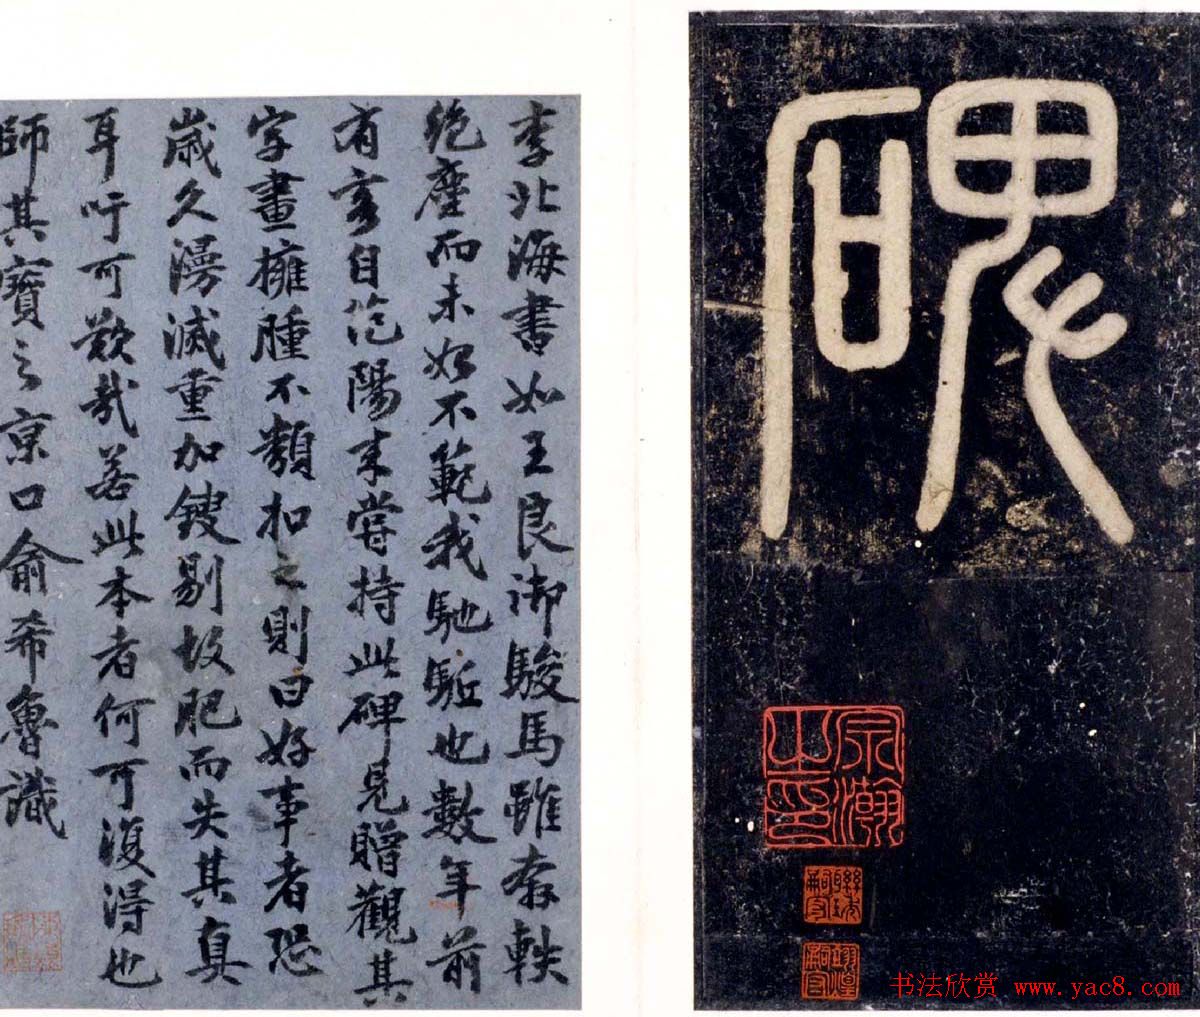 碑
宗瀚之印
李北海書如王良御駿馬雖奔軼
絶塵而未始不範我馳駈也數年前
有客自范陽来嘗持此碑見贈觀其
字畫擁腫不類扣之則曰好事者恐
歲久漫滅重加鋟剔故肥而失其真
耳吁可歎哉若此本者何可復得也
師其寶之京口俞希魯識
书法欣赏 www.yac8.com